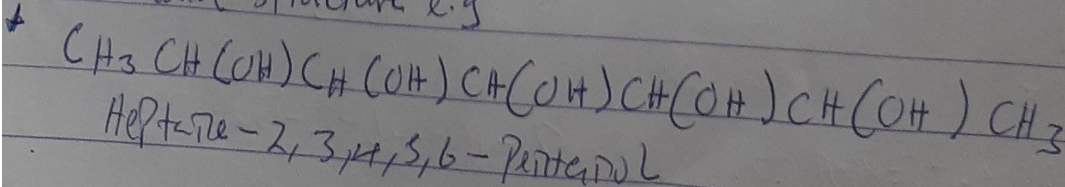 structure e.g
* CH3 CH(OH) CH(OH) CH(OH) CH(OH) CH(OH) CH3
Heptane-2,3,4,5,6-Pentanol